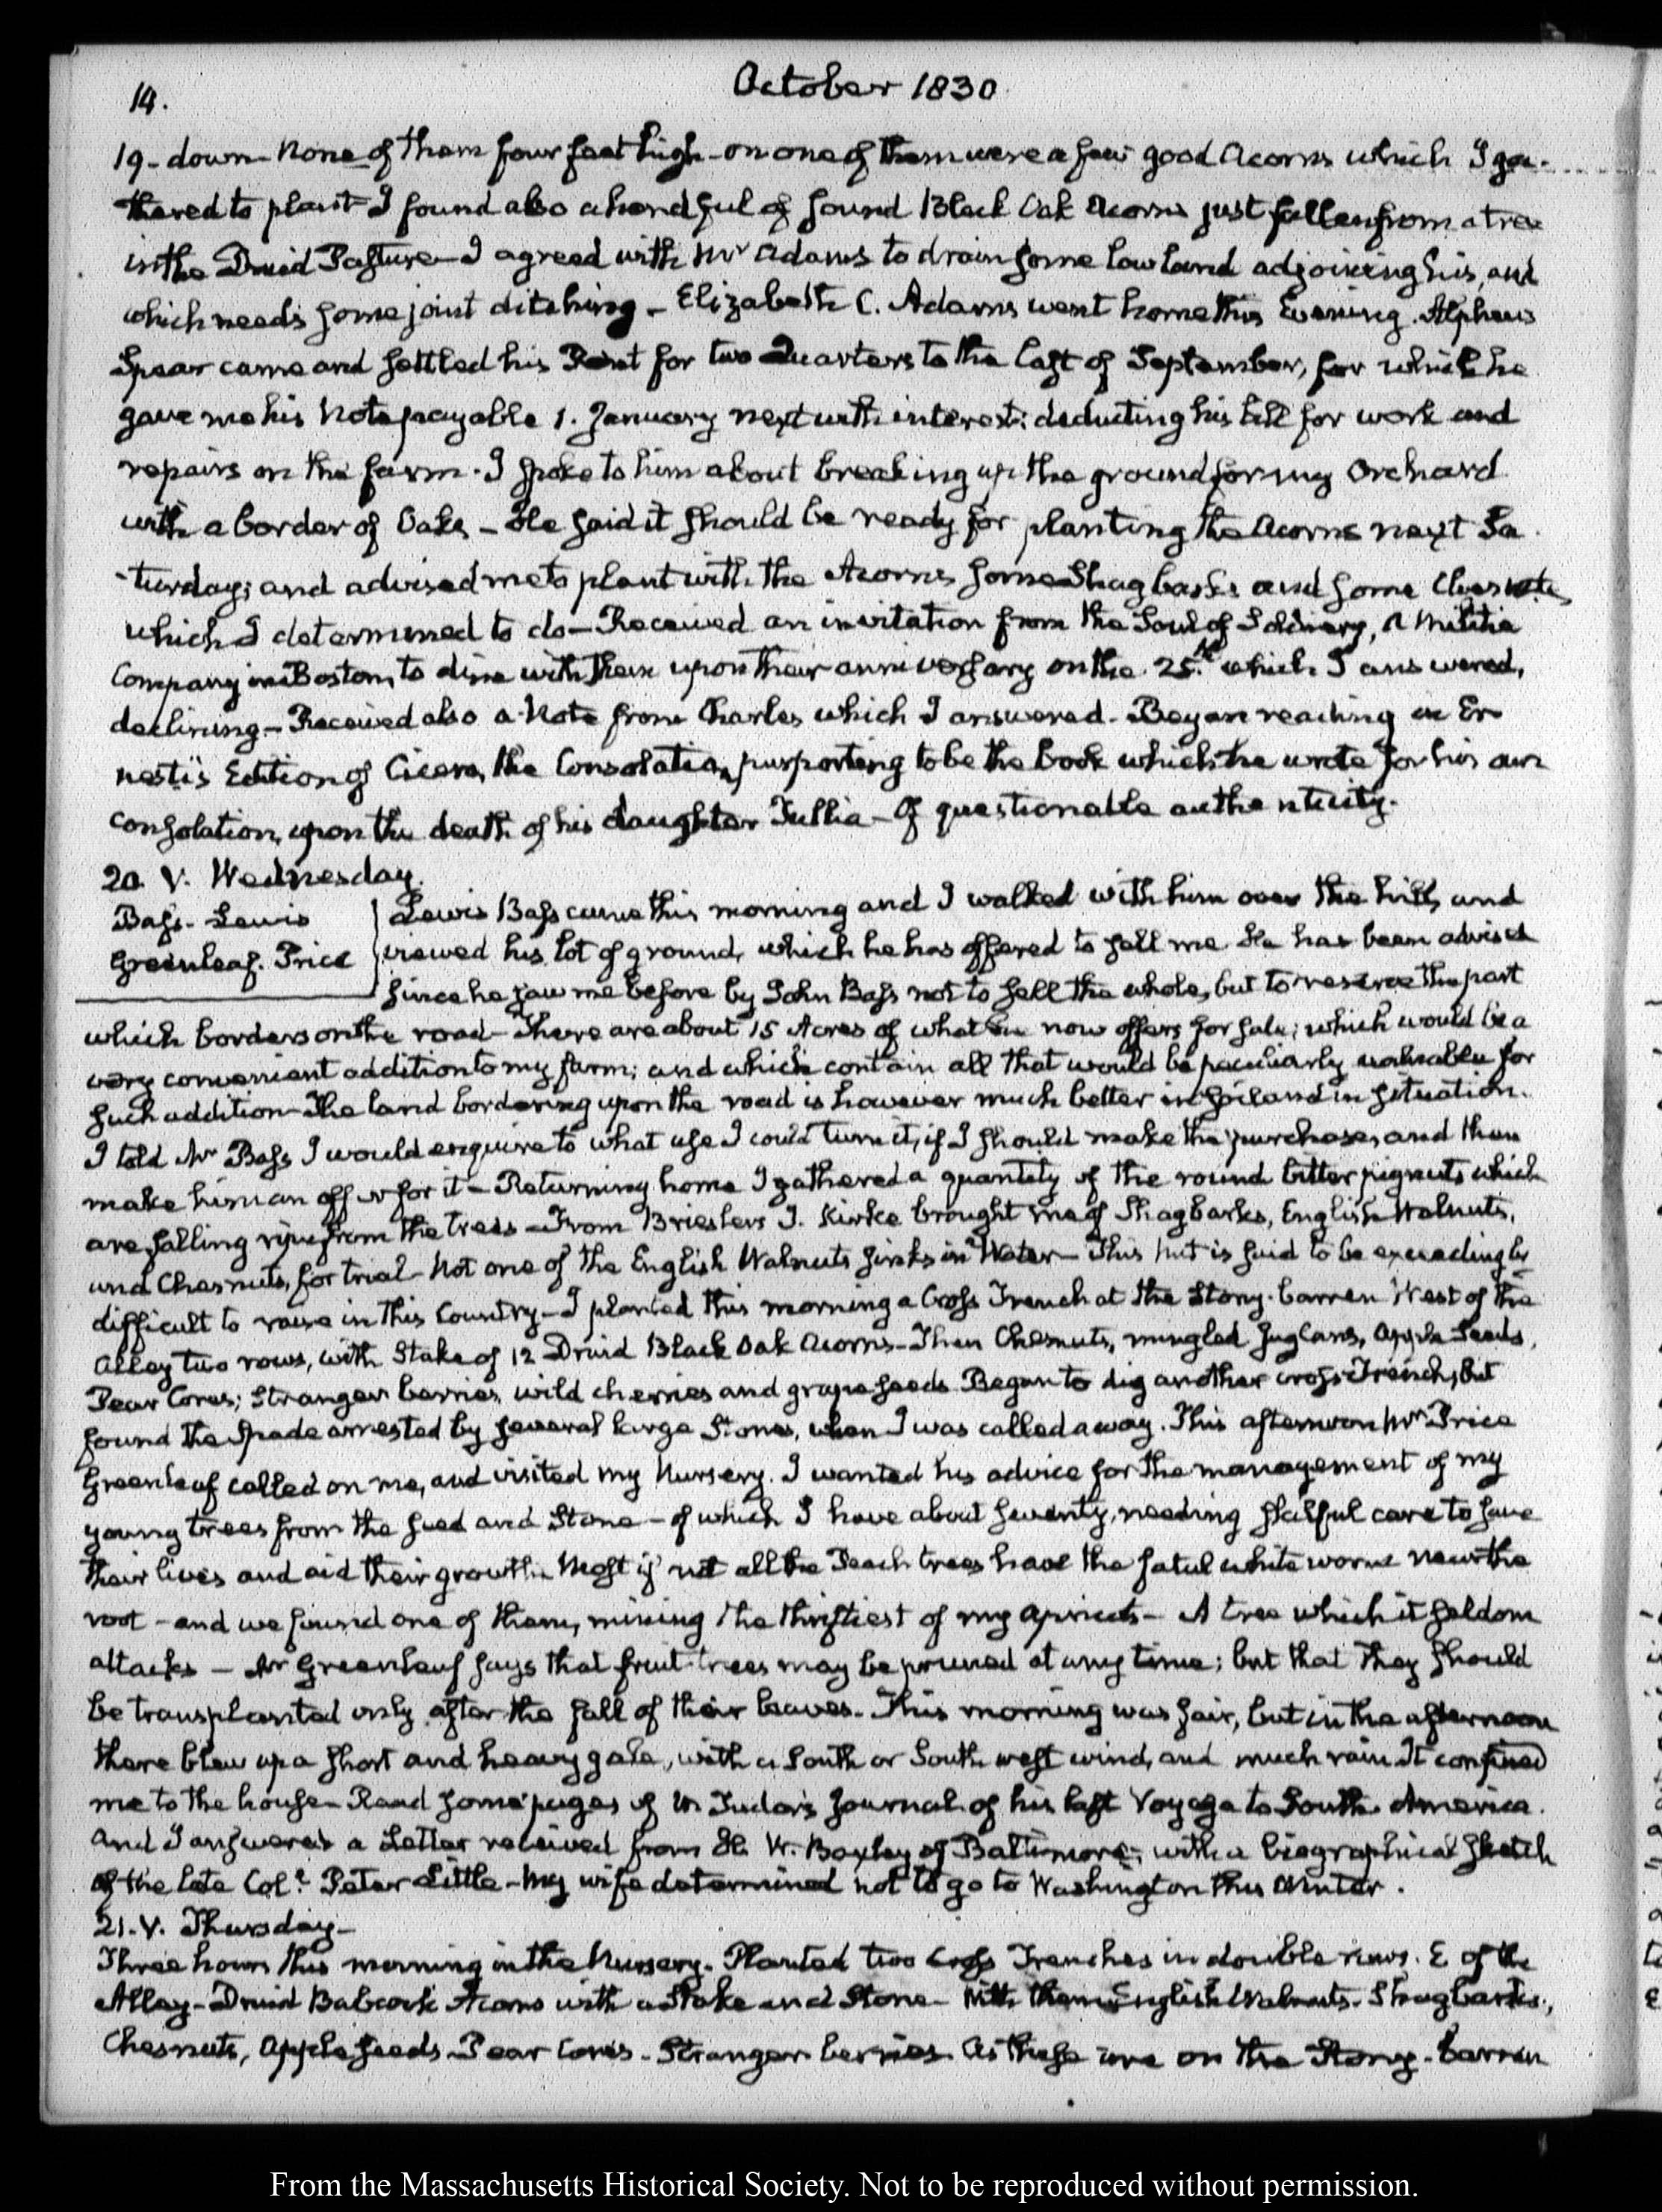 14.
October 1830
19 - down - None of them four feet high - on one of them were a few good Acorns which I ga-
thered to plant - I found also a handful of sound Black Oak Acorns just fallen from a tree
in the Druid Pasture - I agreed with Mr Adams to drain some low land adjoining his, and
which needs some joint ditching - Elizabeth C. Adams went home this Evening. Alpheus
Spear came and settled his Rent for two Quarters to the last of September, for which he
gave me his Note payable 1. January next with interest: deducting his bill for work and
repairs on the farm. I spoke to him about breaking up the ground for my Orchard
with a border of Oaks - He said it should be ready for planting the Acorns next Sa-
-turday; and advised me to plant with the Acorns some Shagbarks and some Chesnuts
which I determined to do - Received an invitation from the Soul of Soldiery, a Militia
Company in Boston, to dine with them upon their anniversary on the 25th. which I answered,
declining - Received also a Note from Charles which I answered. Began reading in Er-
nesti's Edition of Cicero, the Consolation, purporting to be the book which he wrote for his own
consolation, upon the death of his daughter Tullia - Of questionable authenticity.
20. V. Wednesday.
Bass. Lewis
Greenleaf. Price
Lewis Bass came this morning and I walked with him over the hill, and
viewed his lot of ground, which he has offered to sell me. He has been advised
since he saw me before by John Bass not to sell the whole, but to reserve the part
which borders on the road - There are about 15 Acres of what he now offers for sale; which would be a
very convenient addition to my farm; and which contain all that would be peculiarly valuable for
such addition - The land bordering upon the road is however much better in soil and in situation.
I told Mr Bass I would enquire to what use I could turn it, if I should make the purchase, and then
make him an offer for it - Returning home I gathered a quantity of the round bitter pignuts which
are falling ripe from the trees - From Brieslers J. Kirke brought me of Shagbarks, English Walnuts,
and Chesnuts, for trial - Not one of the English Walnuts sinks in Water - This Nut is said to be exceedingly
difficult to raise in this Country - I planted this morning a Cross Trench at the Stony-barren West of the
Alley two rows, with Stake of 12 Druid Black Oak Acorns - Then Chesnuts, mingled Juglans, Apple Seeds,
Pear Cores; Stranger berries, wild cherries and grape seeds. Began to dig another cross Trench, but
found the Spade arrested by several large Stones, when I was called away. This afternoon Mr Price
Greenleaf called on me, and visited my Nursery. I wanted his advice for the management of my
young trees from the seed and Stone - of which I have about seventy, needing skilful care to save
their lives and aid their growth. Most if not all the Peach trees have the fatal white worm near the
root - and we found one of them, mining the thriftiest of my apricots - A tree which it seldom
attacks - Mr Greenleaf says that fruit-trees may be pruned at any time; but that they should
be transplanted only after the fall of their leaves. This morning was fair, but in the afternoon
there blew up a short and heavy gale, with a South or South west wind, and much rain. It confined
me to the house - Read some pages of W. Tudor's Journal of his last Voyage to South America.
And I answered a Letter received from H. W. Boxley of Baltimore; with a biographical Sketch
of the late Coll. Peter Little - My wife determined not to go to Washington this Winter.
21. V. Thursday -
Three hours this morning in the Nursery. Planted two Cross Trenches in double rows. E of the
Alley - Druid Babcock Acorns with a Stake and Stone - With them English Walnuts - Shagbarks,
Chesnuts, Apple seeds - Pear Cores - Stranger berries. As these are on the Stony-barren
From the Massachusetts Historical Society. Not to be reproduced without permission.